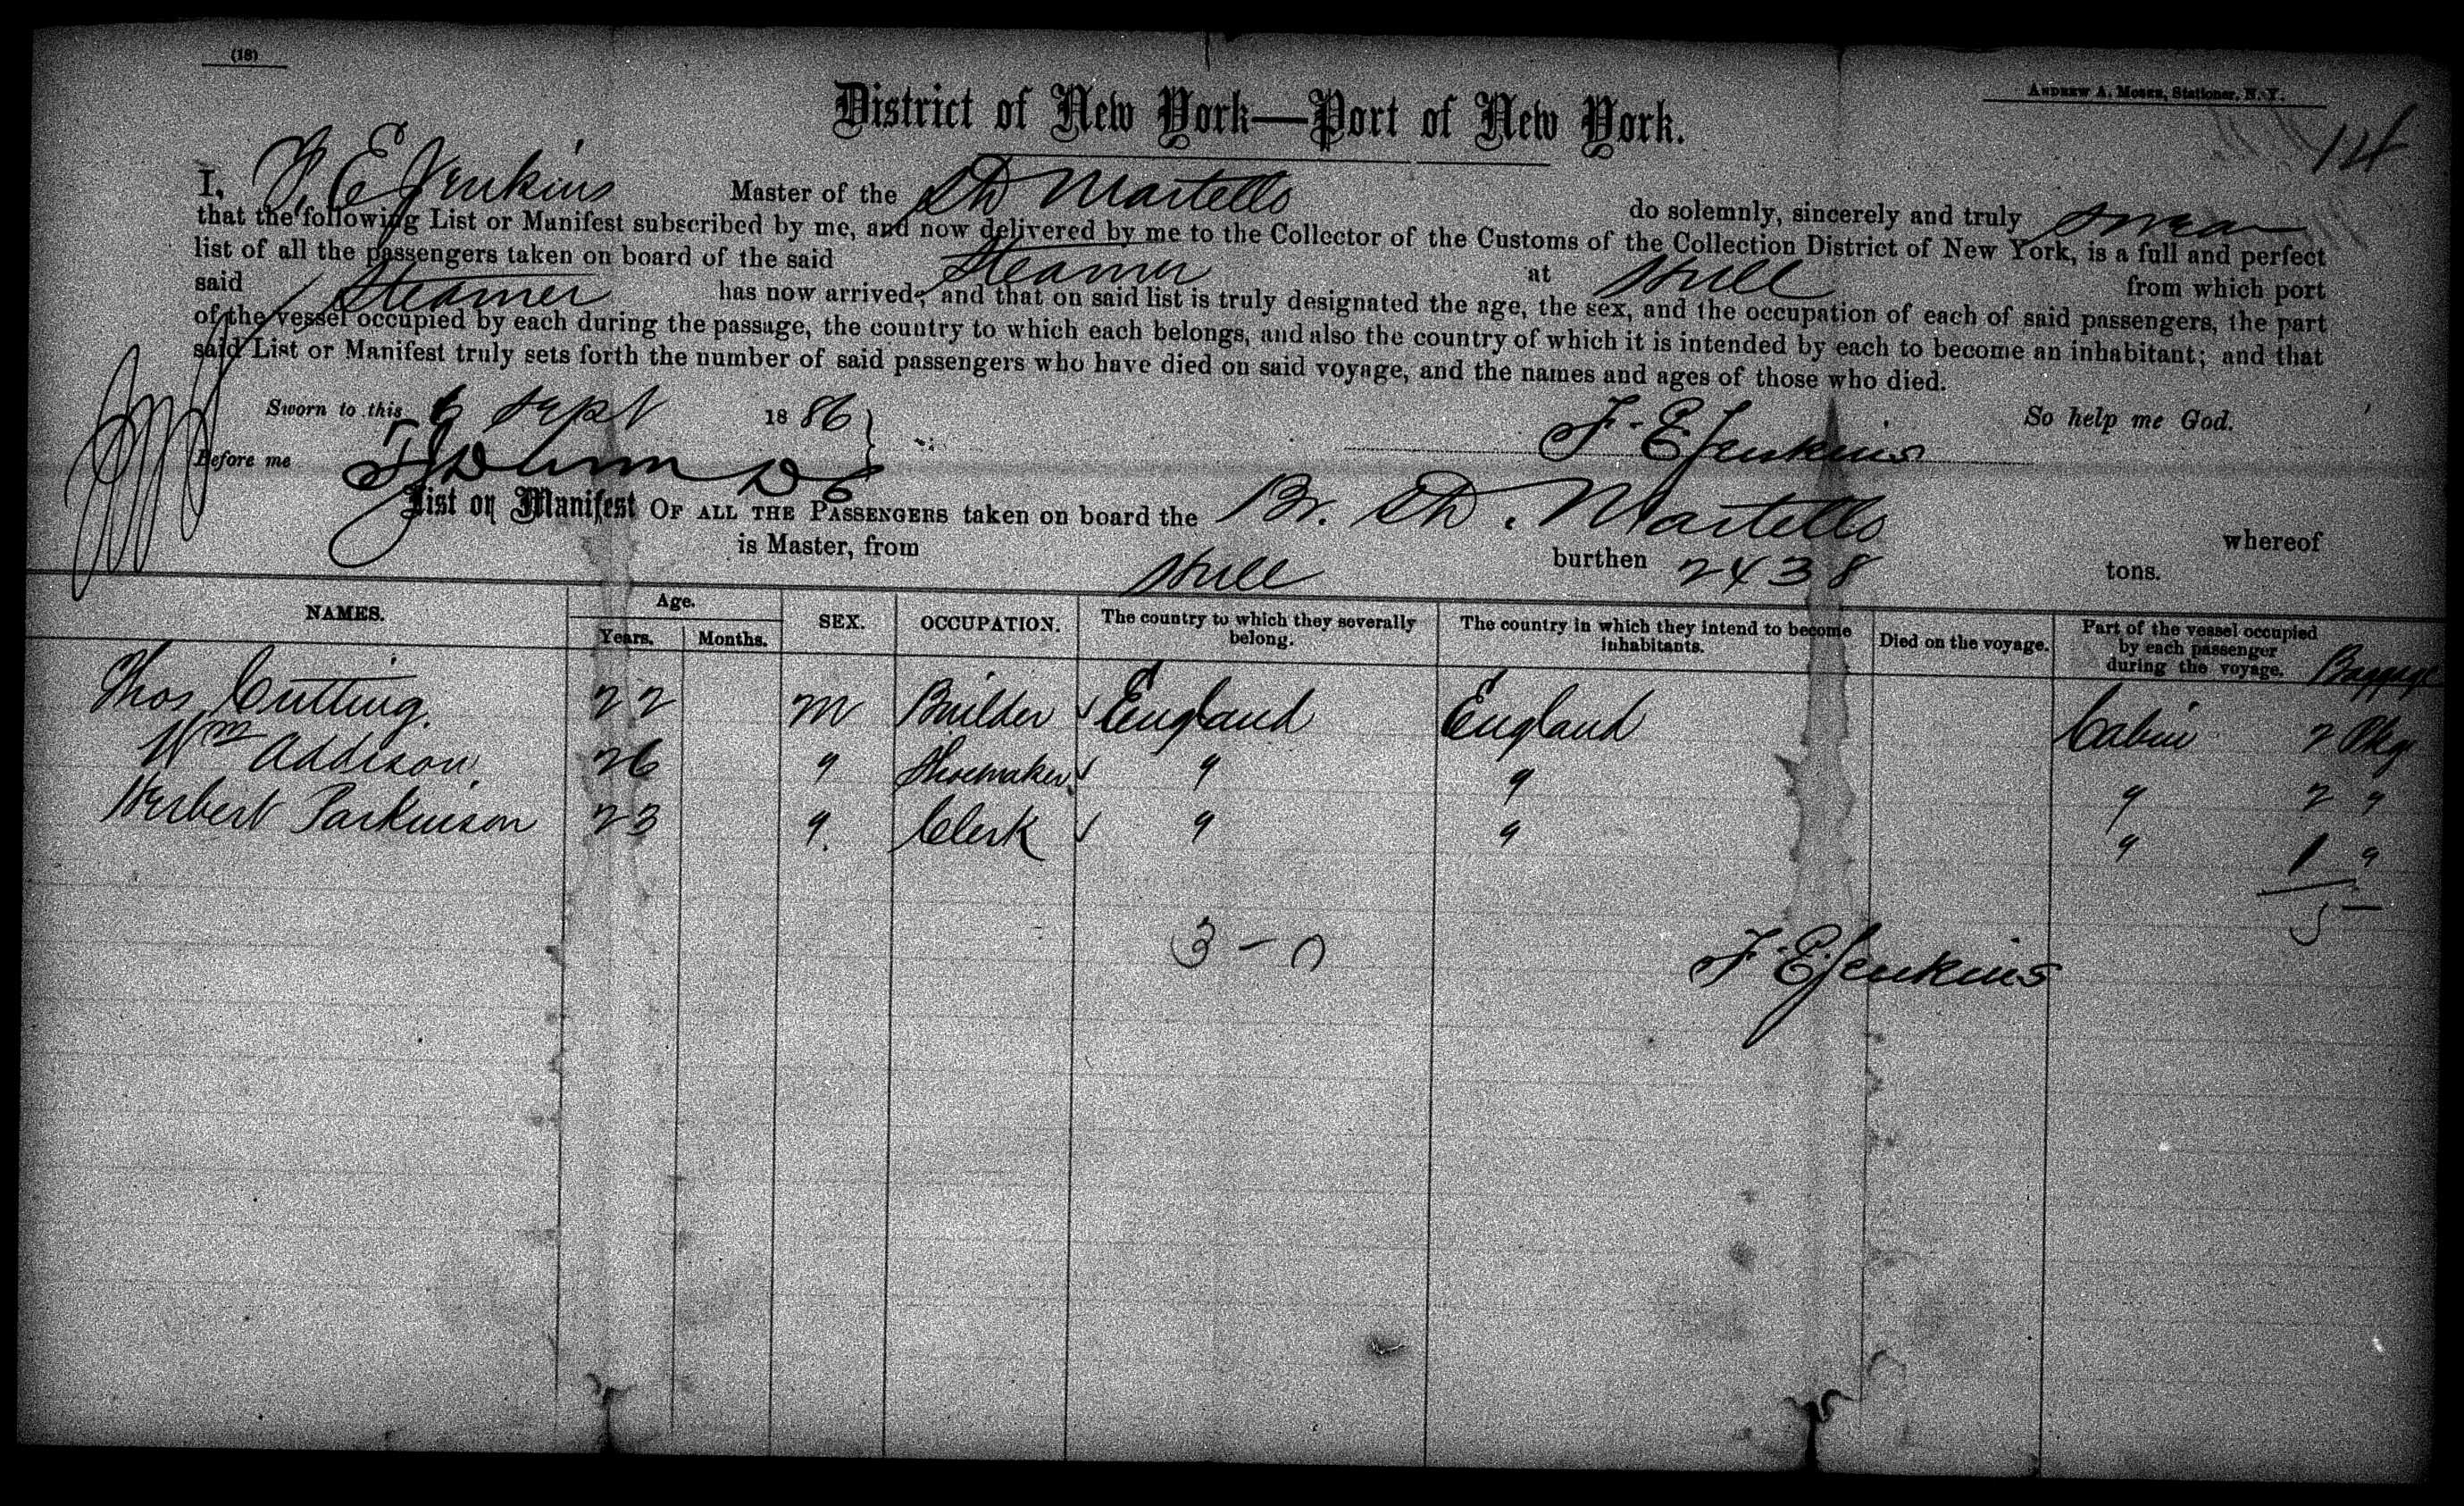 (18)
ANDREW A. MOSES, Stationer, N. Y.
District of New York—Port of New York.
I, F. E. Jenkins Master of the Sh Martello do solemnly, sincerely and truly swear
that the following List or Manifest subscribed by me, and now delivered by me to the Collector of the Customs of the Collection District of New York, is a full and perfect
list of all the passengers taken on board of the said Steamer at Hull from which port
said Steamer has now arrived; and that on said list is truly designated the age, the sex, and the occupation of each of said passengers, the part
of the vessel occupied by each during the passage, the country to which each belongs, and also the country of which it is intended by each to become an inhabitant; and that
said List or Manifest truly sets forth the number of said passengers who have died on said voyage, and the names and ages of those who died.
So help me God.
Sworn to this 6 Sept 1886
F. E. Jenkins
Before me
List or Manifest OF ALL THE PASSENGERS taken on board the Br. Sh. Martello whereof
is Master, from Hull burthen 2438 tons.
NAMES. Age. Years. Months. SEX. OCCUPATION. The country to which they severally belong. The country in which they intend to become inhabitants. Died on the voyage. Part of the vessel occupied by each passenger during the voyage. Baggage
Thos Cutting. 22 M Builder ✓ England England Cabin 2 Pkg
Wm Addison. 26 " Shoemaker ✓ " " " 2 "
Herbert Parkinson 23 " Clerk ✓ " " " 1 "
5
3 - 0
F. E. Jenkins